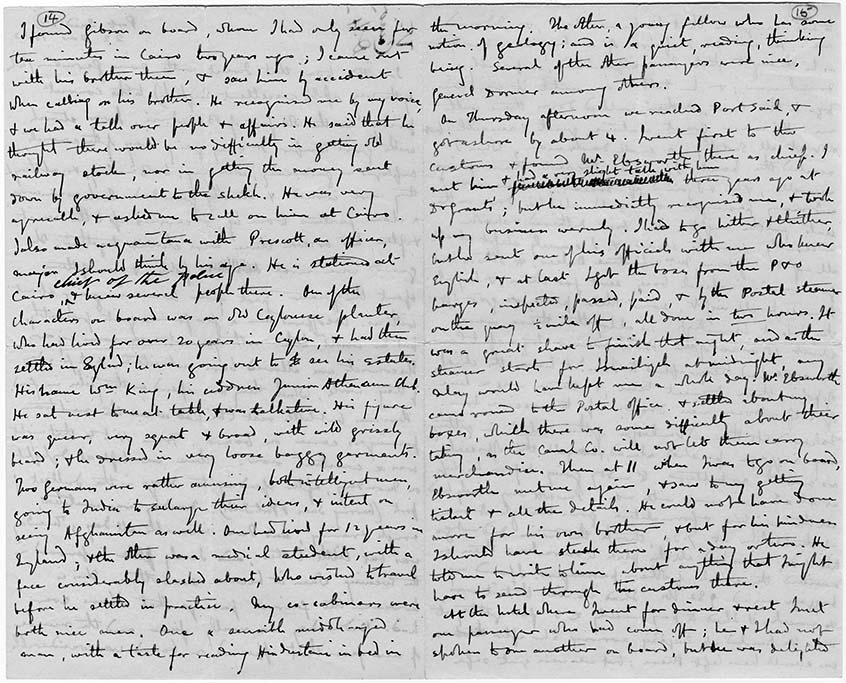 14
I found Gibson on board, whom I had only seen for
ten minutes in Cairo two years ago; I came out
with his brother then, & saw him by accident
when calling on his brother. He recognised me by my voice
& we had a talk over people & affairs. He said that he
thought there would be no difficulty in getting old
railway stock, nor in getting the money sent
down by government to the shekh. He was very
agreeable, & asked me to call on him at Cairo.
I also made acquaintance with Prescott, an officer,
major I should think by his age. He is stationed at
chief of the police
Cairo, & knew several people there. One of the
characters on board was an old Ceylonese planter,
who had lived for over 20 years in Ceylon, & had then
settled in England; he was going out to see his estates.
His name Wm King, his address Junior Athenaeum Club.
He sat next to me at table, & was talkative. His figure
was queer, very squat & broad, with wild grizzly
beard; & he dressed in very loose baggy garments.
Two Germans were rather amusing, both intelligent men,
going to India to enlarge their ideas, & intent on
seeing Afghanistan as well. One had lived for 12 years in
England; & the other was a medical student, with a
face considerably slashed about, who wished to travel
before he settled in practice. My co-cabiners were
both nice men. One a smooth middle-aged
man, with a taste for reading Hindustani in bed in
15
the morning. The other, a young fellow who has some
notion of geology; and is a quiet, reading, thinking
being. Several of the other passengers were nice,
General Dormer among others.
On Thursday afternoon we reached Port Said, &
got ashore by about 4. I went first to the
Customs & found Mr. Ebsworth there as chief. I
met him & had a very slight talk with him three years ago at
Dr Grant's; but he immediately recognised me, & took
up my business warmly. I had to go hither & thither,
but he sent one of his officials with me who knew
English, & at last I got the boxes from the P & O
barges, inspected, passed, paid, & by the Postal steamer
on the quay ½ mile off, all done in two hours. It
was a great shave to finish that night, and as the
steamer starts for Ismailiyeh at midnight, any
delay would have kept me a whole day. Mr. Ebsworth
came round to the Postal office & settled about my
boxes, which there was some difficulty about their
taking, as the Canal Co. will not let them carry
merchandise. Then at 11 when I was to go on board,
Ebsworth met me again, & saw to my getting
ticket & all the details. He could not have done
more for his own brother, & but for his kindness
I should have stuck there for a day or two. He
told me to write to him about anything that I might
have to send through the customs there.
At the hotel where I went for dinner & rest I met
one passenger who had come off; he & I had not
spoken to one another on board, but he was delighted